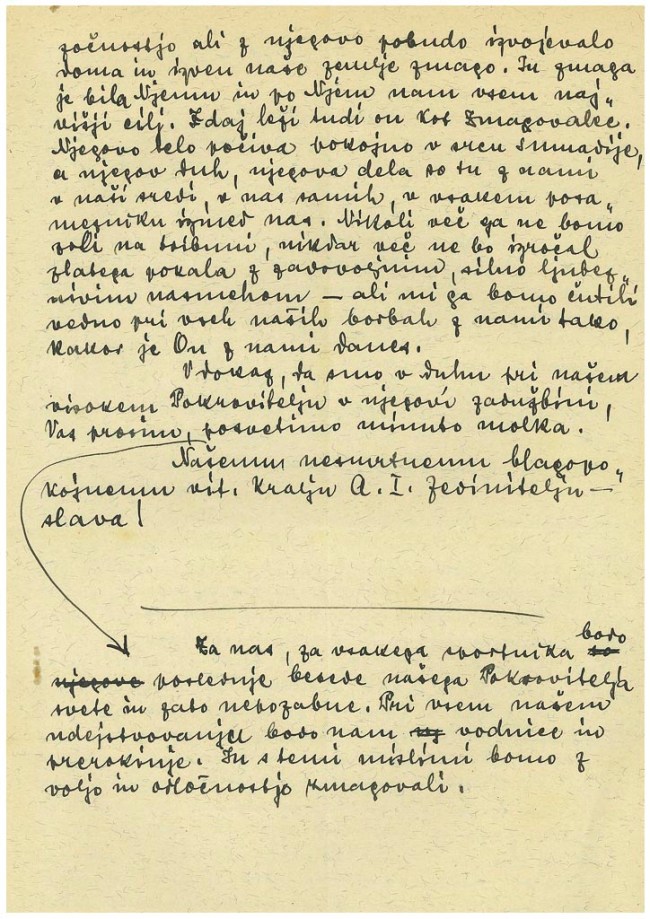 točnostjo ali z njegovo pobudo izvojevalo
doma in izven naše zemlje zmago. In zmaga
je bila Njemu in po Njem nam vsem naj„
višji cilj. Zdaj leži tudi on kot Zmagovalec.
Njegovo telo počiva pokojno v srcu Šumadije,
a njegov duh, njegova dela so tu z nami
v naši sredi, v nas samih, v vsakem posa„
mezniku izmed nas. Nikoli več ga ne bomo
na tribuni, nikdar več ne bo izročal
zlatega pokala z zadovoljnim, silno ljubez„
nivim nasmehom — ali mi ga bomo čutili
vedno pri vseh naših borbah z nami tako,
kakor je On z nami danes.
V dokaz, da smo v duhu pri našem
visokem Pokrovitelju v njegovi zadužbini,
Vas prosim, posvetimo minuto molka.
Našemu nesmrtnemu blagopo„
kojnemu vit. Kralju A. I. Zedinitelju —
slava!
Za nas, za vsakega sportnika bodo
so
njegove poslednje besede našega Pokrovitelja
svete in zato nepozabne. Pri vsem našem
udejstvovanju bodo nam vodnice in
prerokinje. In s temi mislimi bomo z
voljo in odločnostjo zmagovali.